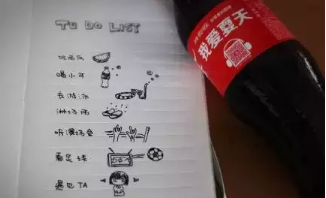 TO DO LIST
吃西瓜
喝小酒
去游泳
淋场雨
听演唱会
看足球
遇见TA
我爱夏天